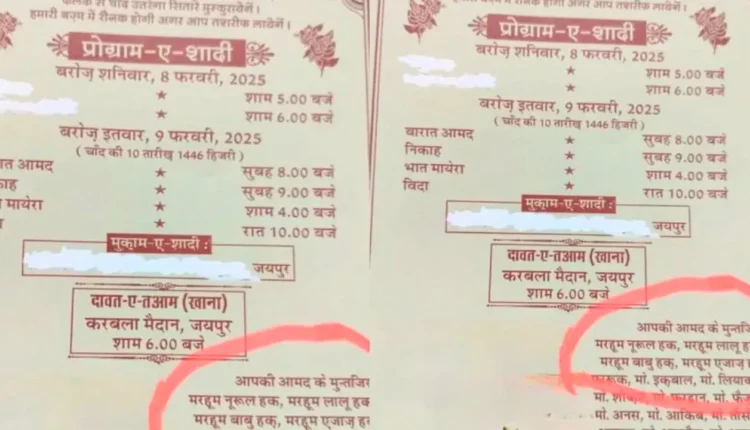 फलक से चाँद उतरेगा सितारे मुस्कुरायेंगें।
हमारी बज़्म में रौनक होगी अगर आप तशरीफ लायेगें।
प्रोग्राम-ए-शादी
बरोज़ शनिवार, 8 फरवरी, 2025
★ शाम 5.00 बजे
★ शाम 6.00 बजे
बरोज़ इतवार, 9 फरवरी, 2025
( चाँद की 10 तारीख़ 1446 हिजरी )
आमद ★ सुबह 8.00 बजे
★ सुबह 9.00 बजे
मायेरा ★ शाम 4.00 बजे
★ रात 10.00 बजे
मुक़ाम-ए-शादी :
जयपुर
दावत-ए-तआम (खाना)
करबला मैदान, जयपुर
शाम 6.00 बजे
आपकी आमद के
मरहूम नूरूल हक, मरहूम लालू हक
मरहूम बाबु हक, मरहूम एजाज़
हमारी बज़्म में रौनक होगी अगर आप तशरीफ लायेगें।
प्रोग्राम-ए-शादी
बरोज़ शनिवार, 8 फरवरी, 2025
★ शाम 5.00 बजे
★ शाम 6.00 बजे
बरोज़ इतवार, 9 फरवरी, 2025
( चाँद की 10 तारीख़ 1446 हिजरी )
बारात आमद ★ सुबह 8.00 बजे
निकाह ★ सुबह 9.00 बजे
भात मायेरा ★ शाम 4.00 बजे
विदा ★ रात 10.00 बजे
मुक़ाम-ए-शादी :
जयपुर
दावत-ए-तआम (खाना)
करबला मैदान, जयपुर
शाम 6.00 बजे
आपकी आमद के
मरहूम नूरूल हक, मरहूम लालू
मरहूम बाबु हक, मरहूम एजाज़
मो. इक़बाल, मो.
मो. फरहान, मो.
मो. अनस, मो. आकिब, मो.